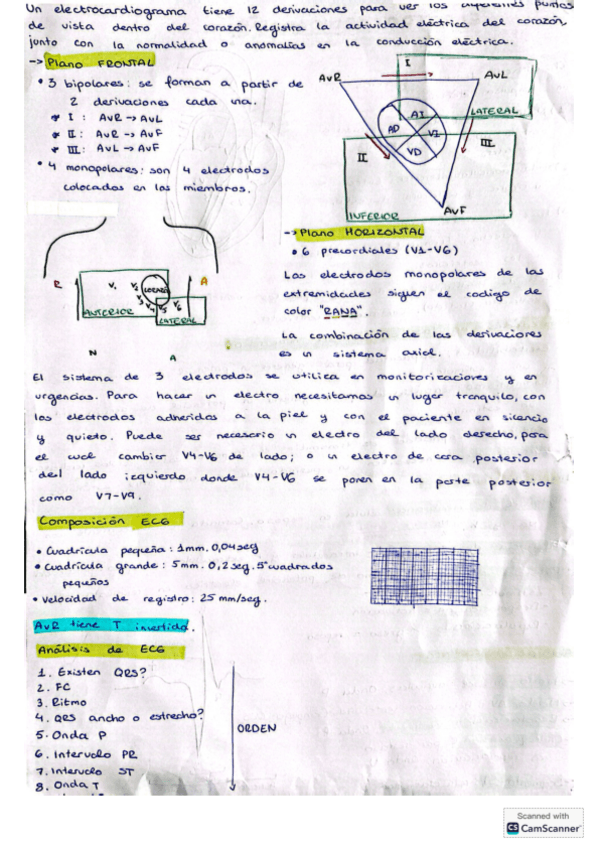 Un electrocardiograma tiene 12 derivaciones para ver los diferentes puntos
de vista dentro del corazón. Registra la actividad eléctrica del corazón,
junto con la normalidad o anomalías en la conducción eléctrica.
-> Plano FRONTAL
• 3 bipolares: se forman a partir de
2 derivaciones cada una.
I : AvR -> AvL
II : AvR -> AvF
III : AvL -> AvF
• 4 monopolares: son 4 electrodos
colocados en los miembros.
I
AvR
AvL
LATERAL
AI
AD
VI
VD
II
III
INFERIOR
AvF
-> Plano HORIZONTAL
• 6 precordiales (V1-V6)
Los electrodos monopolares de las
extremidades siguen el codigo de
color "RANA".
La combinación de las derivaciones
es un sistema axial.
R
A
V1
V2
V3
V4
V5
V6
ANTERIOR
LATERAL
N
A
El sistema de 3 electrodos se utiliza en monitorizaciones y en
urgencias. Para hacer un electro necesitamos un lugar tranquilo, con
los electrodos adheridos a la piel y con el paciente en silencio
y quieto. Puede ser necesario un electro del lado derecho, para
el cual cambiar V4-V6 de lado; o un electro de cara posterior
del lado izquierdo donde V4-V6 se ponen en la parte posterior
como V7-V9.
Composición ECG
• Cuadrícula pequeña: 1mm. 0,04seg
• Cuadrícula grande: 5mm. 0,2 seg. 5 cuadrados
pequeños
• Velocidad de registro: 25 mm/seg.
AvR tiene T invertida.
Análisis de ECG
1. Existen QRS?
2. FC
3. Ritmo
4. QRS ancho o estrecho?
5. Onda P
6. Intervalo PR
7. Intervalo ST
8. Onda T
ORDEN
Scanned with
CS CamScanner